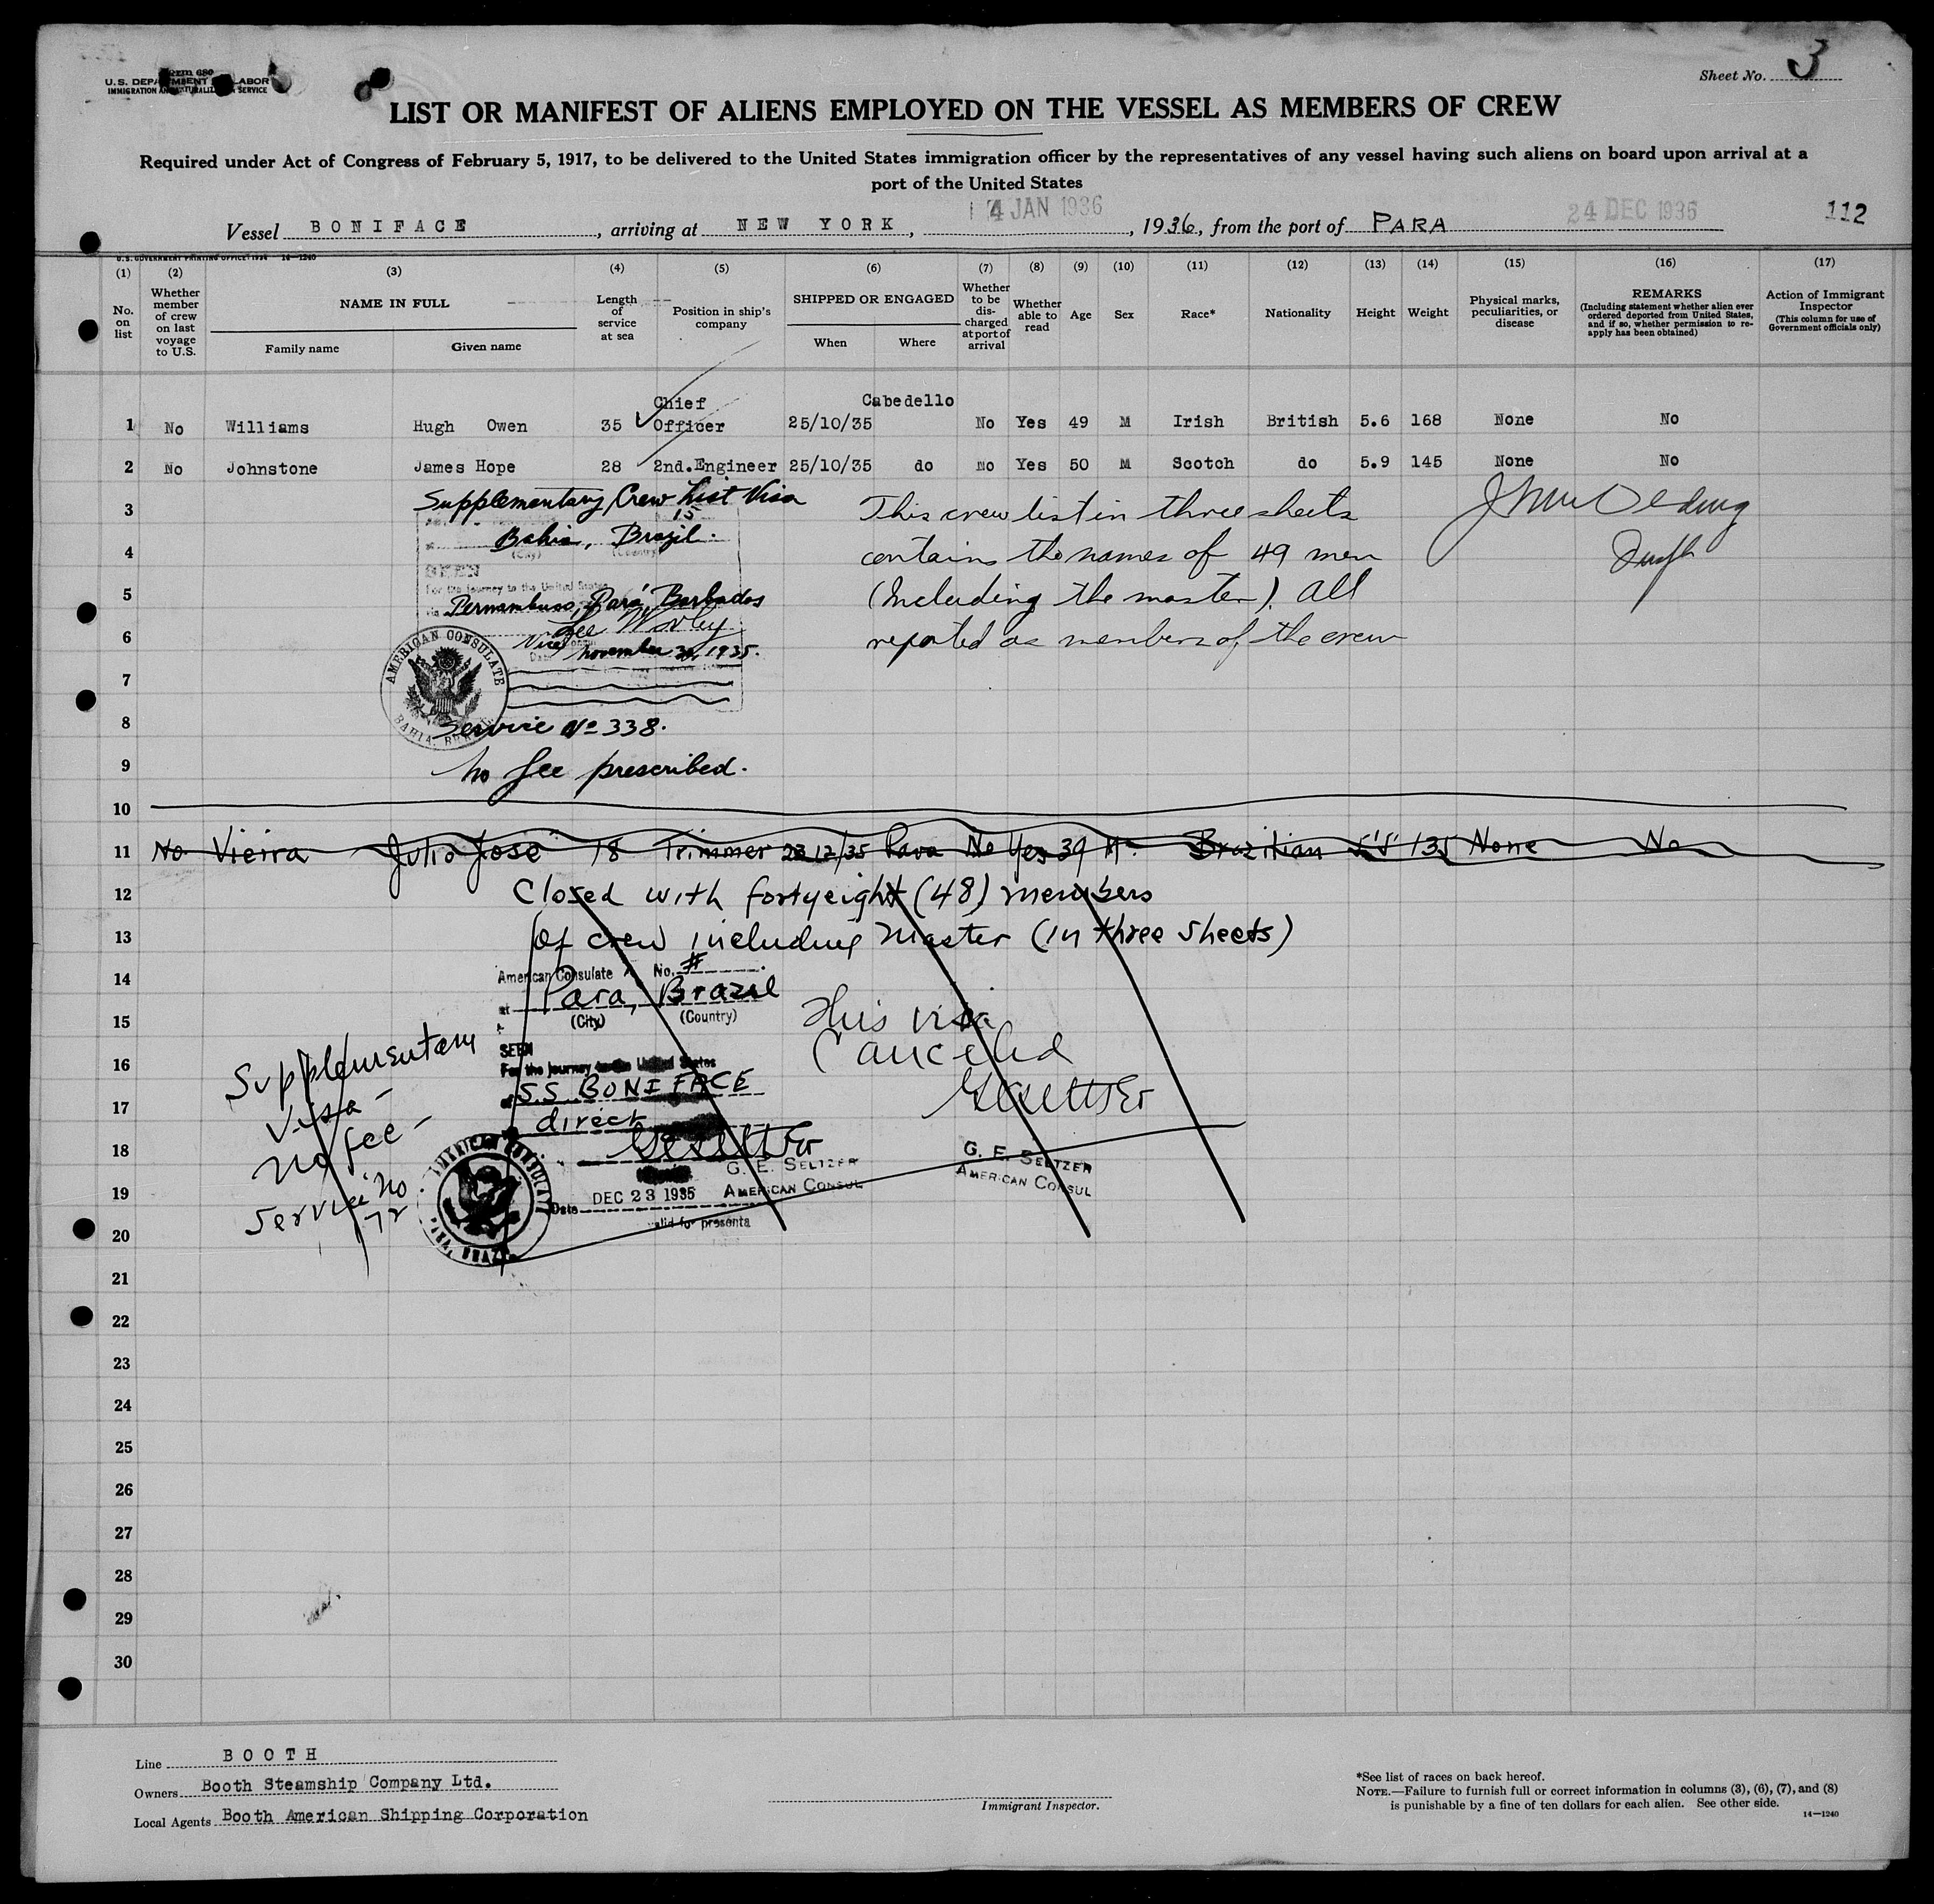 Form 680
U.S. DEPARTMENT OF LABOR
IMMIGRATION AND NATURALIZATION SERVICE
Sheet No. 3
LIST OR MANIFEST OF ALIENS EMPLOYED ON THE VESSEL AS MEMBERS OF CREW
Required under Act of Congress of February 5, 1917, to be delivered to the United States immigration officer by the representatives of any vessel having such aliens on board upon arrival at a
port of the United States
Vessel BONIFACE, arriving at NEW YORK, 14 JAN 1936, 1936, from the port of PARA 24 DEC 1935 112
U.S. GOVERNMENT PRINTING OFFICE: 14—1240
(1) (2) (3) (4) (5) (6) (7) (8) (9) (10) (11) (12) (13) (14) (15) (16) (17)
No. on list
Whether member of crew on last voyage to U.S.
NAME IN FULL
Family name
Given name
Length of service at sea
Position in ship's company
SHIPPED OR ENGAGED
When
Where
Whether to be discharged at port of arrival
Whether able to read
Age
Sex
Race*
Nationality
Height
Weight
Physical marks, peculiarities, or disease
REMARKS
(Including statement whether alien ever ordered deported from United States, and if so, whether permission to reapply has been obtained)
Action of Immigrant Inspector
(This column for use of Government officials only)
1 No Williams Hugh Owen 35 Chief Officer 25/10/35 Cabedello No Yes 49 M Irish British 5.6 168 None No
2 No Johnstone James Hope 28 2nd.Engineer 25/10/35 do no Yes 50 M Scotch do 5.9 145 None No
3 Supplementary Crew List Visa This crew list in three sheets
4 Bahia, Brazil. contains the names of 49 men
(City) (Country)
SEEN
For the journey to the United States
5 via Pernambuco, Pará, Barbados (Including the master). All
6 Vice reported as members of the crew
November 30, 1935.
AMERICAN CONSULATE
BAHIA, BRAZIL
7
8 Service No 338.
9 No fee prescribed.
10
11 No Vieira Julio José 18 Trimmer 23 12/35 Para No Yes 39 M. Brazilian 5'5" 135 None No
12 Closed with fortyeight (48) members
13 of crew including Master (in three sheets)
14 American Consulate No. #
at Para, Brazil
15 (City) (Country) This visa
16 SEEN Canceled
For the journey to the United States
Supplementary
visa —
no fee —
Service No
72
17 S.S. BONIFACE
direct
18 G. E. SELTZER
AMERICAN CONSUL
G. E. SELTZER
AMERICAN CONSUL
19 Date DEC 23 1935
20 valid for presenta
AMERICAN CONSULATE
PARA, BRAZIL
21
22
23
24
25
26
27
28
29
30
Line BOOTH
Owners Booth Steamship Company Ltd.
Local Agents Booth American Shipping Corporation
Immigrant Inspector.
*See list of races on back hereof.
NOTE.—Failure to furnish full or correct information in columns (3), (6), (7), and (8)
is punishable by a fine of ten dollars for each alien. See other side.
14—1240